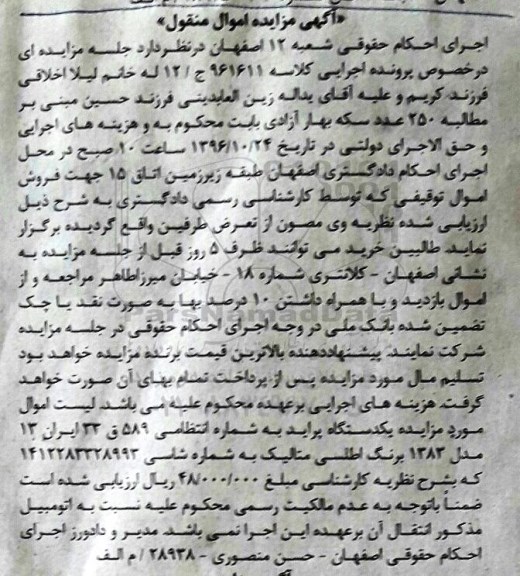 «آگهی مزایده اموال منقول»
اجرای احکام حقوقی شعبه ۱۲ اصفهان درنظردارد جلسه مزایده ای
درخصوص پرونده اجرایی کلاسه ۹۶۱۶۱۱ ج / ۱۲ له خانم لیلا اخلاقی
فرزند کریم و علیه آقای یداله زین العابدینی فرزند حسین مبنی بر
مطالبه ۲۵۰ عدد سکه بهار آزادی بابت محکوم به و هزینه های اجرایی
و حق الاجرای دولتی در تاریخ ۱۳۹۶/۱۰/۲۴ ساعت ۱۰ صبح در محل
اجرای احکام دادگستری اصفهان طبقه زیرزمین اتاق ۱۵ جهت فروش
اموال توقیفی که توسط کارشناسی رسمی دادگستری به شرح ذیل
ارزیابی شده نظریه وی مصون از تعرض طرفین واقع گردیده برگزار
نماید. طالبین خرید می توانند ظرف ۵ روز قبل از جلسه مزایده به
نشانی اصفهان - کلانتری شماره ۱۸ - خیابان میرزاطاهر مراجعه و از
اموال بازدید و با همراه داشتن ۱۰ درصد بها به صورت نقد یا چک
تضمین شده بانک ملی در وجه اجرای احکام حقوقی در جلسه مزایده
شرکت نمایند. پیشنهاددهنده بالاترین قیمت برنده مزایده خواهد بود
تسلیم مال مورد مزایده پس از پرداخت تمام بهای آن صورت خواهد
گرفت. هزینه های اجرایی برعهده محکوم علیه می باشد. لیست اموال
مورد مزایده یکدستگاه پراید به شماره انتظامی ۵۸۹ ق ۳۳ ایران ۱۳
مدل ۱۳۸۳ برنگ اطلسی متالیک به شماره شاسی ۱۴۱۲۲۸۳۳۲۸۹۹۳
که بشرح نظریه کارشناسی مبلغ ۴۸/۰۰۰/۰۰۰ ریال ارزیابی شده است
ضمناً باتوجه به عدم مالکیت رسمی محکوم علیه نسبت به اتومبیل
مذکور انتقال آن برعهده این اجرا نمی باشد. مدیر و دادورز اجرای
احکام حقوقی اصفهان - حسن منصوری - ۲۸۹۳۸ / م الف
ParsNamadData